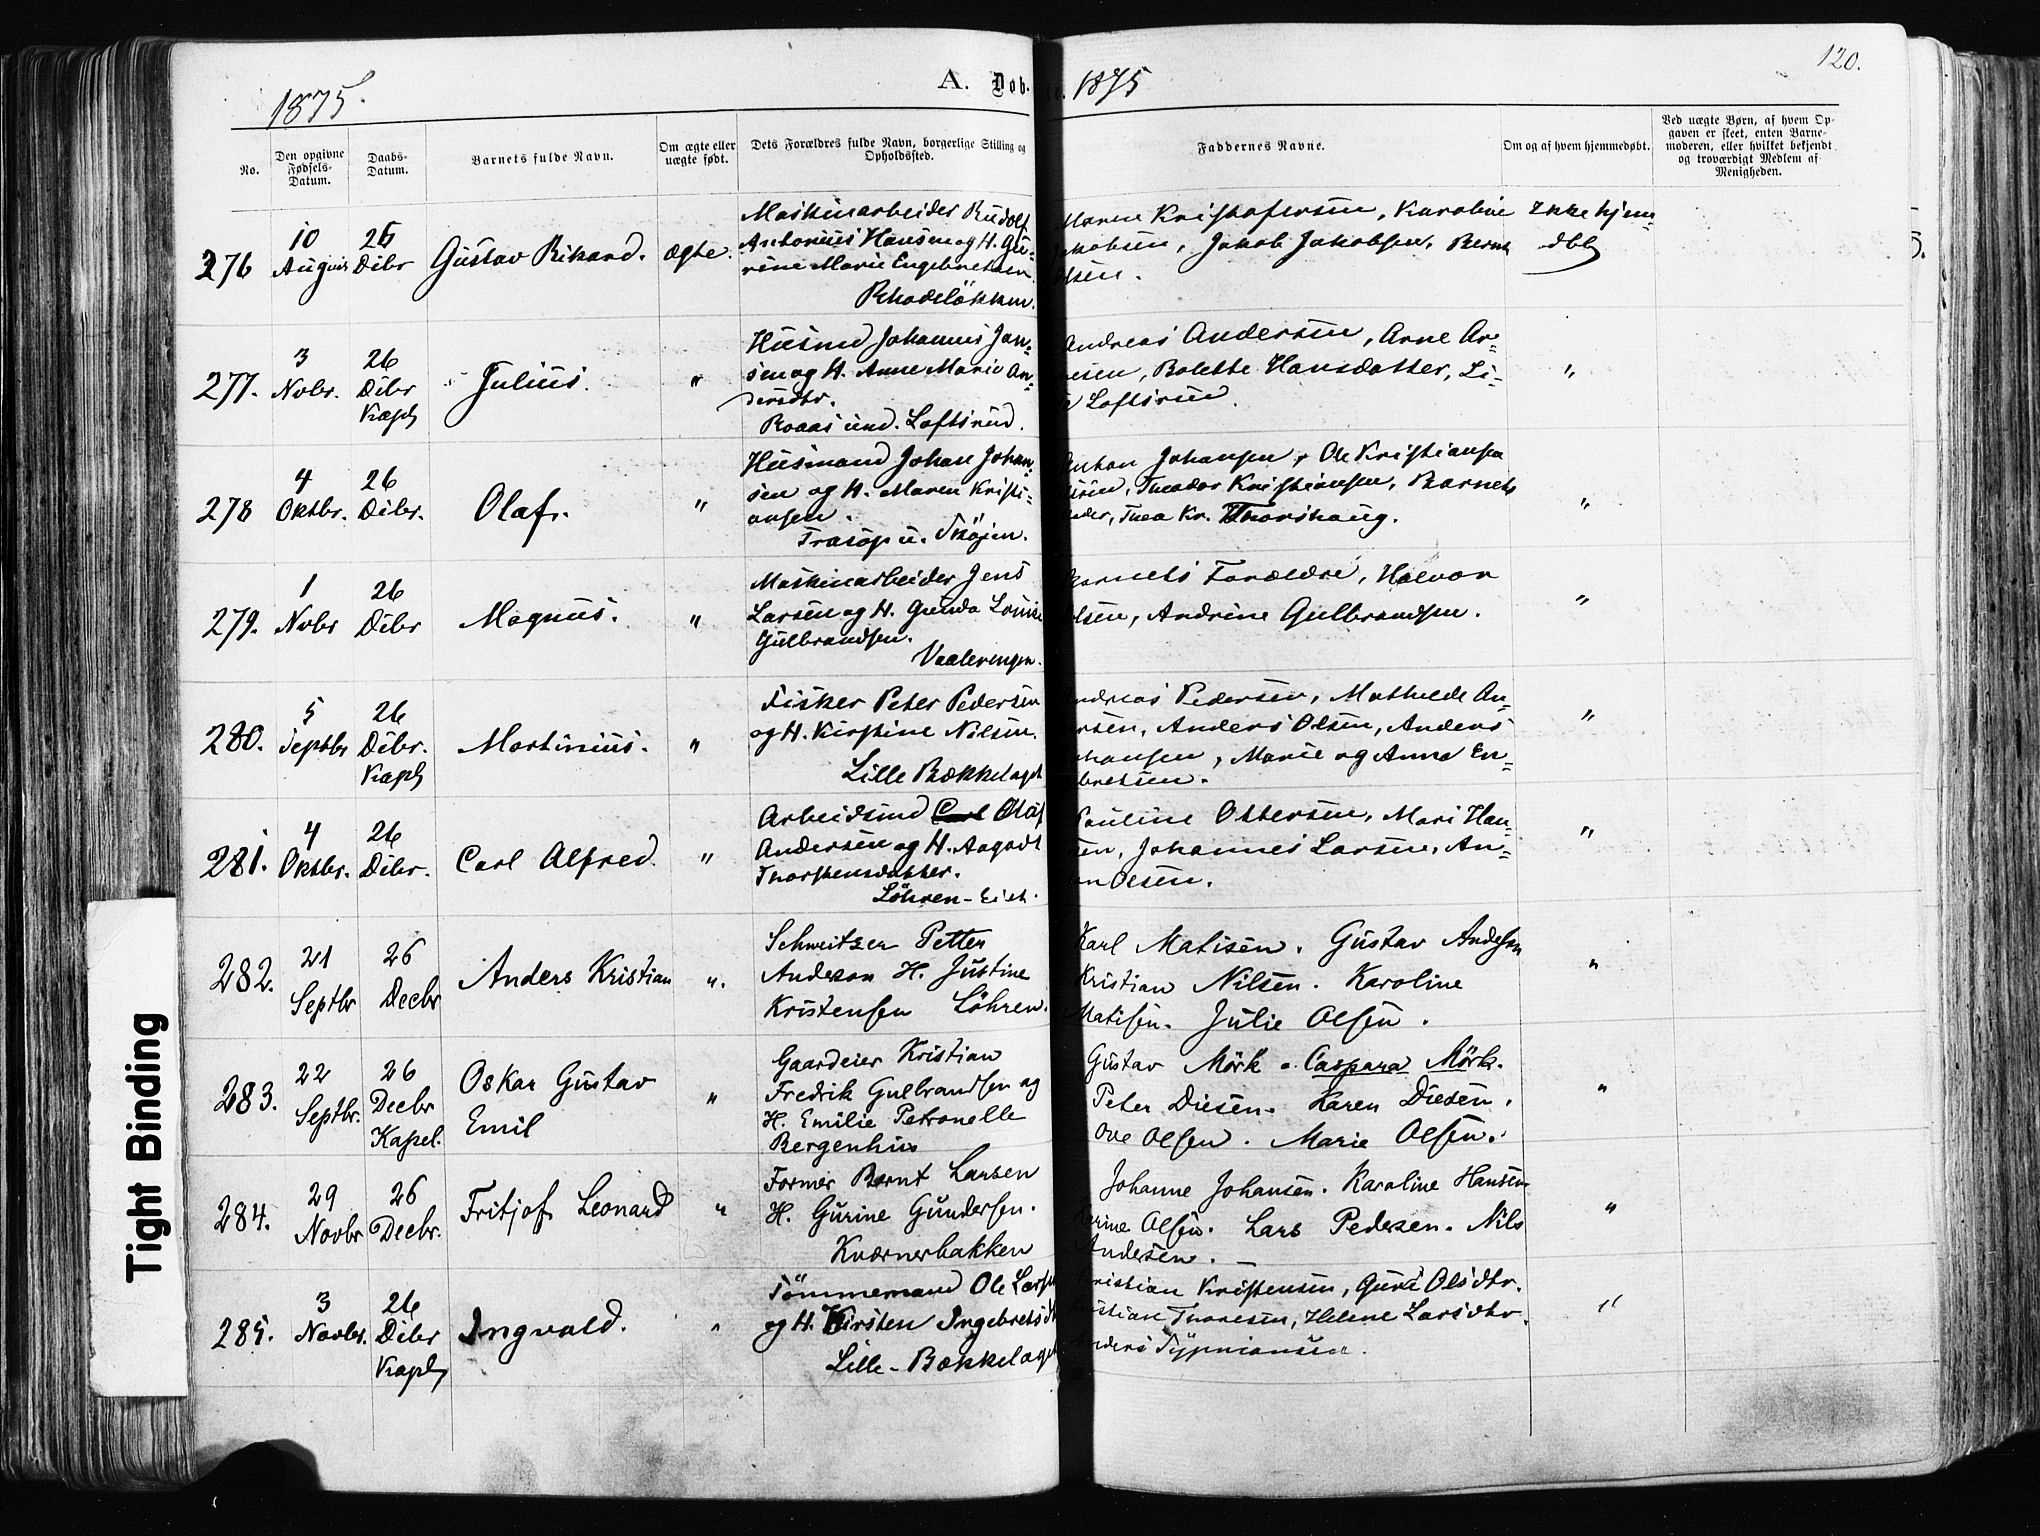 1875.
A. Døb-
1875
120.
No.
Den opgivne Fødsels-Datum.
Daabs-Datum.
Barnets fulde Navn.
Om ægte eller uægte født.
Dets Forældres fulde Navn, borgerlige Stilling og Opholdssted.
Faddernes Navne.
Om og af hvem hjemmedøbt.
Ved uægte Børn, af hvem Op-
gaven er skeet, enten Barne-
moderen, eller hvilket bekjendt
og troværdigt Medlem af
Menigheden.
276
10 August
26 Dibr
Gustav Rikard.
Ægte.
Maskinarbeider Rudolf
Antonius Hansen og H. Gu-
rine Marie Engebretsen
Rhodeløkken.
Maren Kristofersen, Karoline
Jakobsen, Jakob Jakobsen, Bernt
Olsen.
Ikke hjem-
dbt
277.
3 Novbr.
26 Dibr Kapl
Julius.
"
Husmd Johannes Jan-
sen og H. Anne Marie An-
dersdtr.
Roaas und. Loftsrud.
Andreas Andersen, Arne Ar-
nesen, Bolette Hansdatter, Li-
Loftsrud.
"
278
4 Oktbr.
26 Dibr.
Olaf.
"
Husmand Johan Johan-
sen og H. Maren Kristi-
ansen.
Trasop u. Tköjen.
Anton Johansen, Ole Kristiansen
Theodor Kristiansen, Barnets
Fader, Thea Kr. Thorshaug.
"
279.
1 Novbr
26 Dibr
Magnus.
"
Maskinarbeider Jens
Larsen og H. Gunda Louise
Gulbrandsen.
Vaalerengen.
Barnets Forældre, Halvor
Olsen, Andrine Gulbrandsen.
"
280.
5 Septbr
26 Dibr. Kapl
Martinius.
"
Fisker Peter Pedersen
og H. Kirstine Nilsen.
Lille Bækkelaget
Andreas Pedersen, Mathilde An-
ersen, Anders Olsen, Anders
Johansen, Marie og Anne En-
gebretsen.
"
281.
4 Oktbr.
26 Dibr.
Carl Alfred.
"
Arbeidsmd Carl Olaf
Andersen og H. Aagodt
Thorstensdatter.
Löhren-Eiet.
Pauline Ottersen, Mari Han-
sen, Johannes Larsen, An-
ton Olsen.
"
282.
21 Septbr
26 Decbr
Anders Kristian
".
Schweitser Petter
Anderson H. Justine
Kristensen Löhren.
Karl Matisen. Gustav Andersen
Kristian Nilsen. Karoline
Matisen. Julie Olsen.
"
283.
22 Septbr.
26 Decbr Kapel.
Oskar Gustav
Emil
"
Gaardeier Kristian
Fredrik Gulbrandsen og
H. Emilie Petronelle
Bergenhus
Gustav Mörk. Caspara Mörk.
Peter Diesen. Karen Diesen.
Ove Olsen. Marie Olsen.
"
284.
29 Novbr
26 Decbr.
Fritjof Leonard
"
Former Bernt Larsen
H. Gurine Gundersen.
Kværnerbakken
Johanne Johansen. Karoline Hansen
Olsen. Lars Pedersen. Nils
Andersen.
"
285.
3 Novbr.
26 Dibr Kapl
Ingvald.
"
Tömmermand Ole Larsen
og H. Kirsten Ingebretsdt
Lille-Bækkelaget
Kristian Kristensen, Guri Olsdtr.
Kristian Thoresen, Helene Larsdtr.
Anders
"
Tight Binding